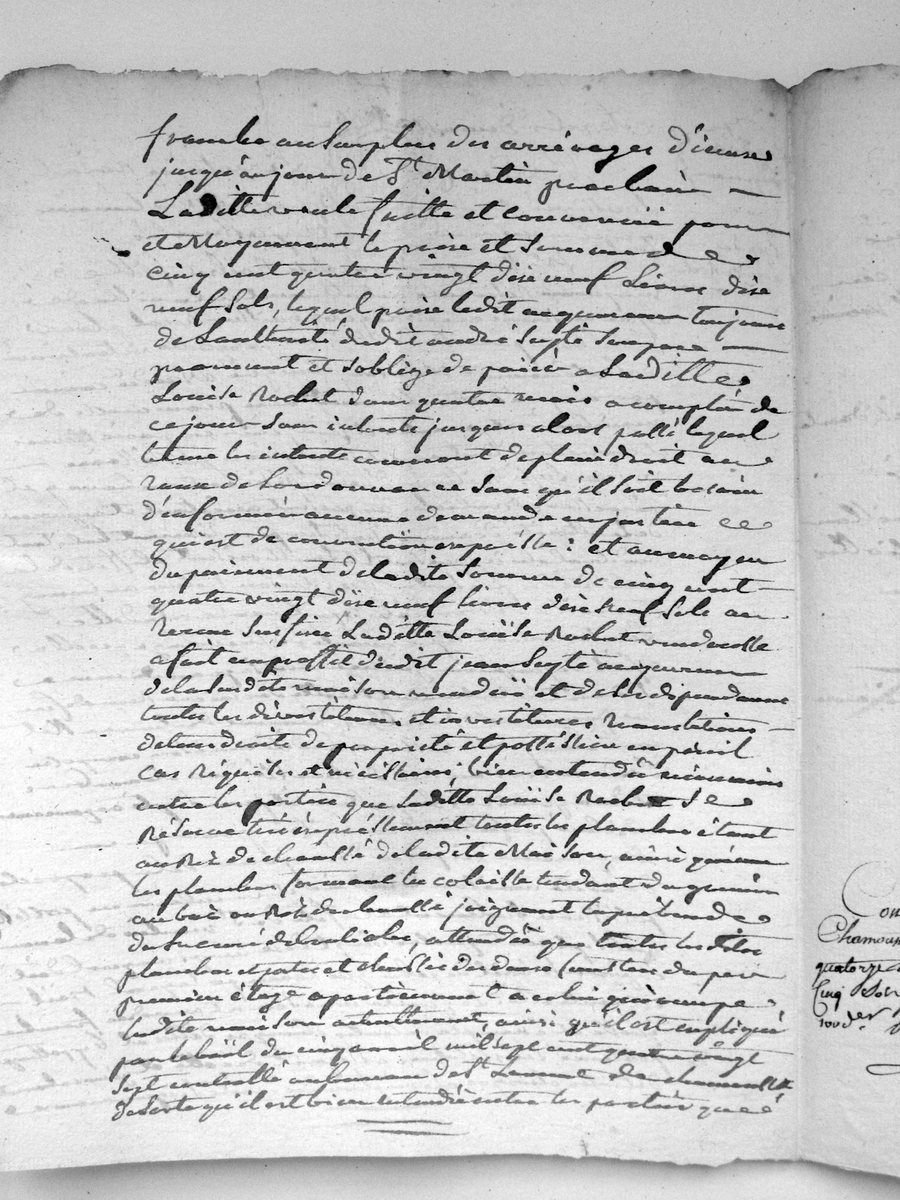 franche au surplus des arrérages d'iceuse
jusqu'au jour de St Martin prochain —
Laditte vente faitte et convenüe pour
et Moyennant le prix et somme de
cinq cent quatre vingt dixe neuf Livres dixe
neuf sols, lequel prix ledit acquereur toujours
de Lauthorité dudit andré Seyte son pere —
promment et soblige de paier a Laditte
Loüise Rochet dans quatre mois a compter de
ce jour sans interets jusques alors passé lequel
terme les interets courront de plain droit au
taux de Lordonnance sans qu'il soit besoin
d'en former aucune demande en justice
qui est de convention expresse : et au moyen
du paiement de ladite somme de cinq cent
quatre vingt dixe neuf livres dixe neuf sols au
terme sus fixé Laditte Loüise Rochet venderesse
a fait au proffit dudit jean Seyte acquereur
de la susditte maison vendüe et de ses dependances
toutes les divestitures et investitures translations
de tous droits de proprieté et possession en pareil
cas Requises et necessaires ; bien entendu neanmoins
entre les parties que laditte Loüise Rochet se
Réserve tres expressement toutes les planches étant
au Rez de chaussé de ladite Maison, ainsi que
les planches formant la colaisse tendant du grenier
au bas au Rez de chaussé joignant la prébende
de attendu que toutes lesdites
planches et portes et chassis des deux fenetres du
premier étage apartiennent a celui qui occupe
ladite maison actuellement, ainsi qu'il est expliqué
par le bail du cinq avril mil sept cent quatre vingt
sept controllé au bureau de St Laurent de chamousset
de sorte qu'il est bien entendu entre les parties que
Chamous
quatorze
Cinq